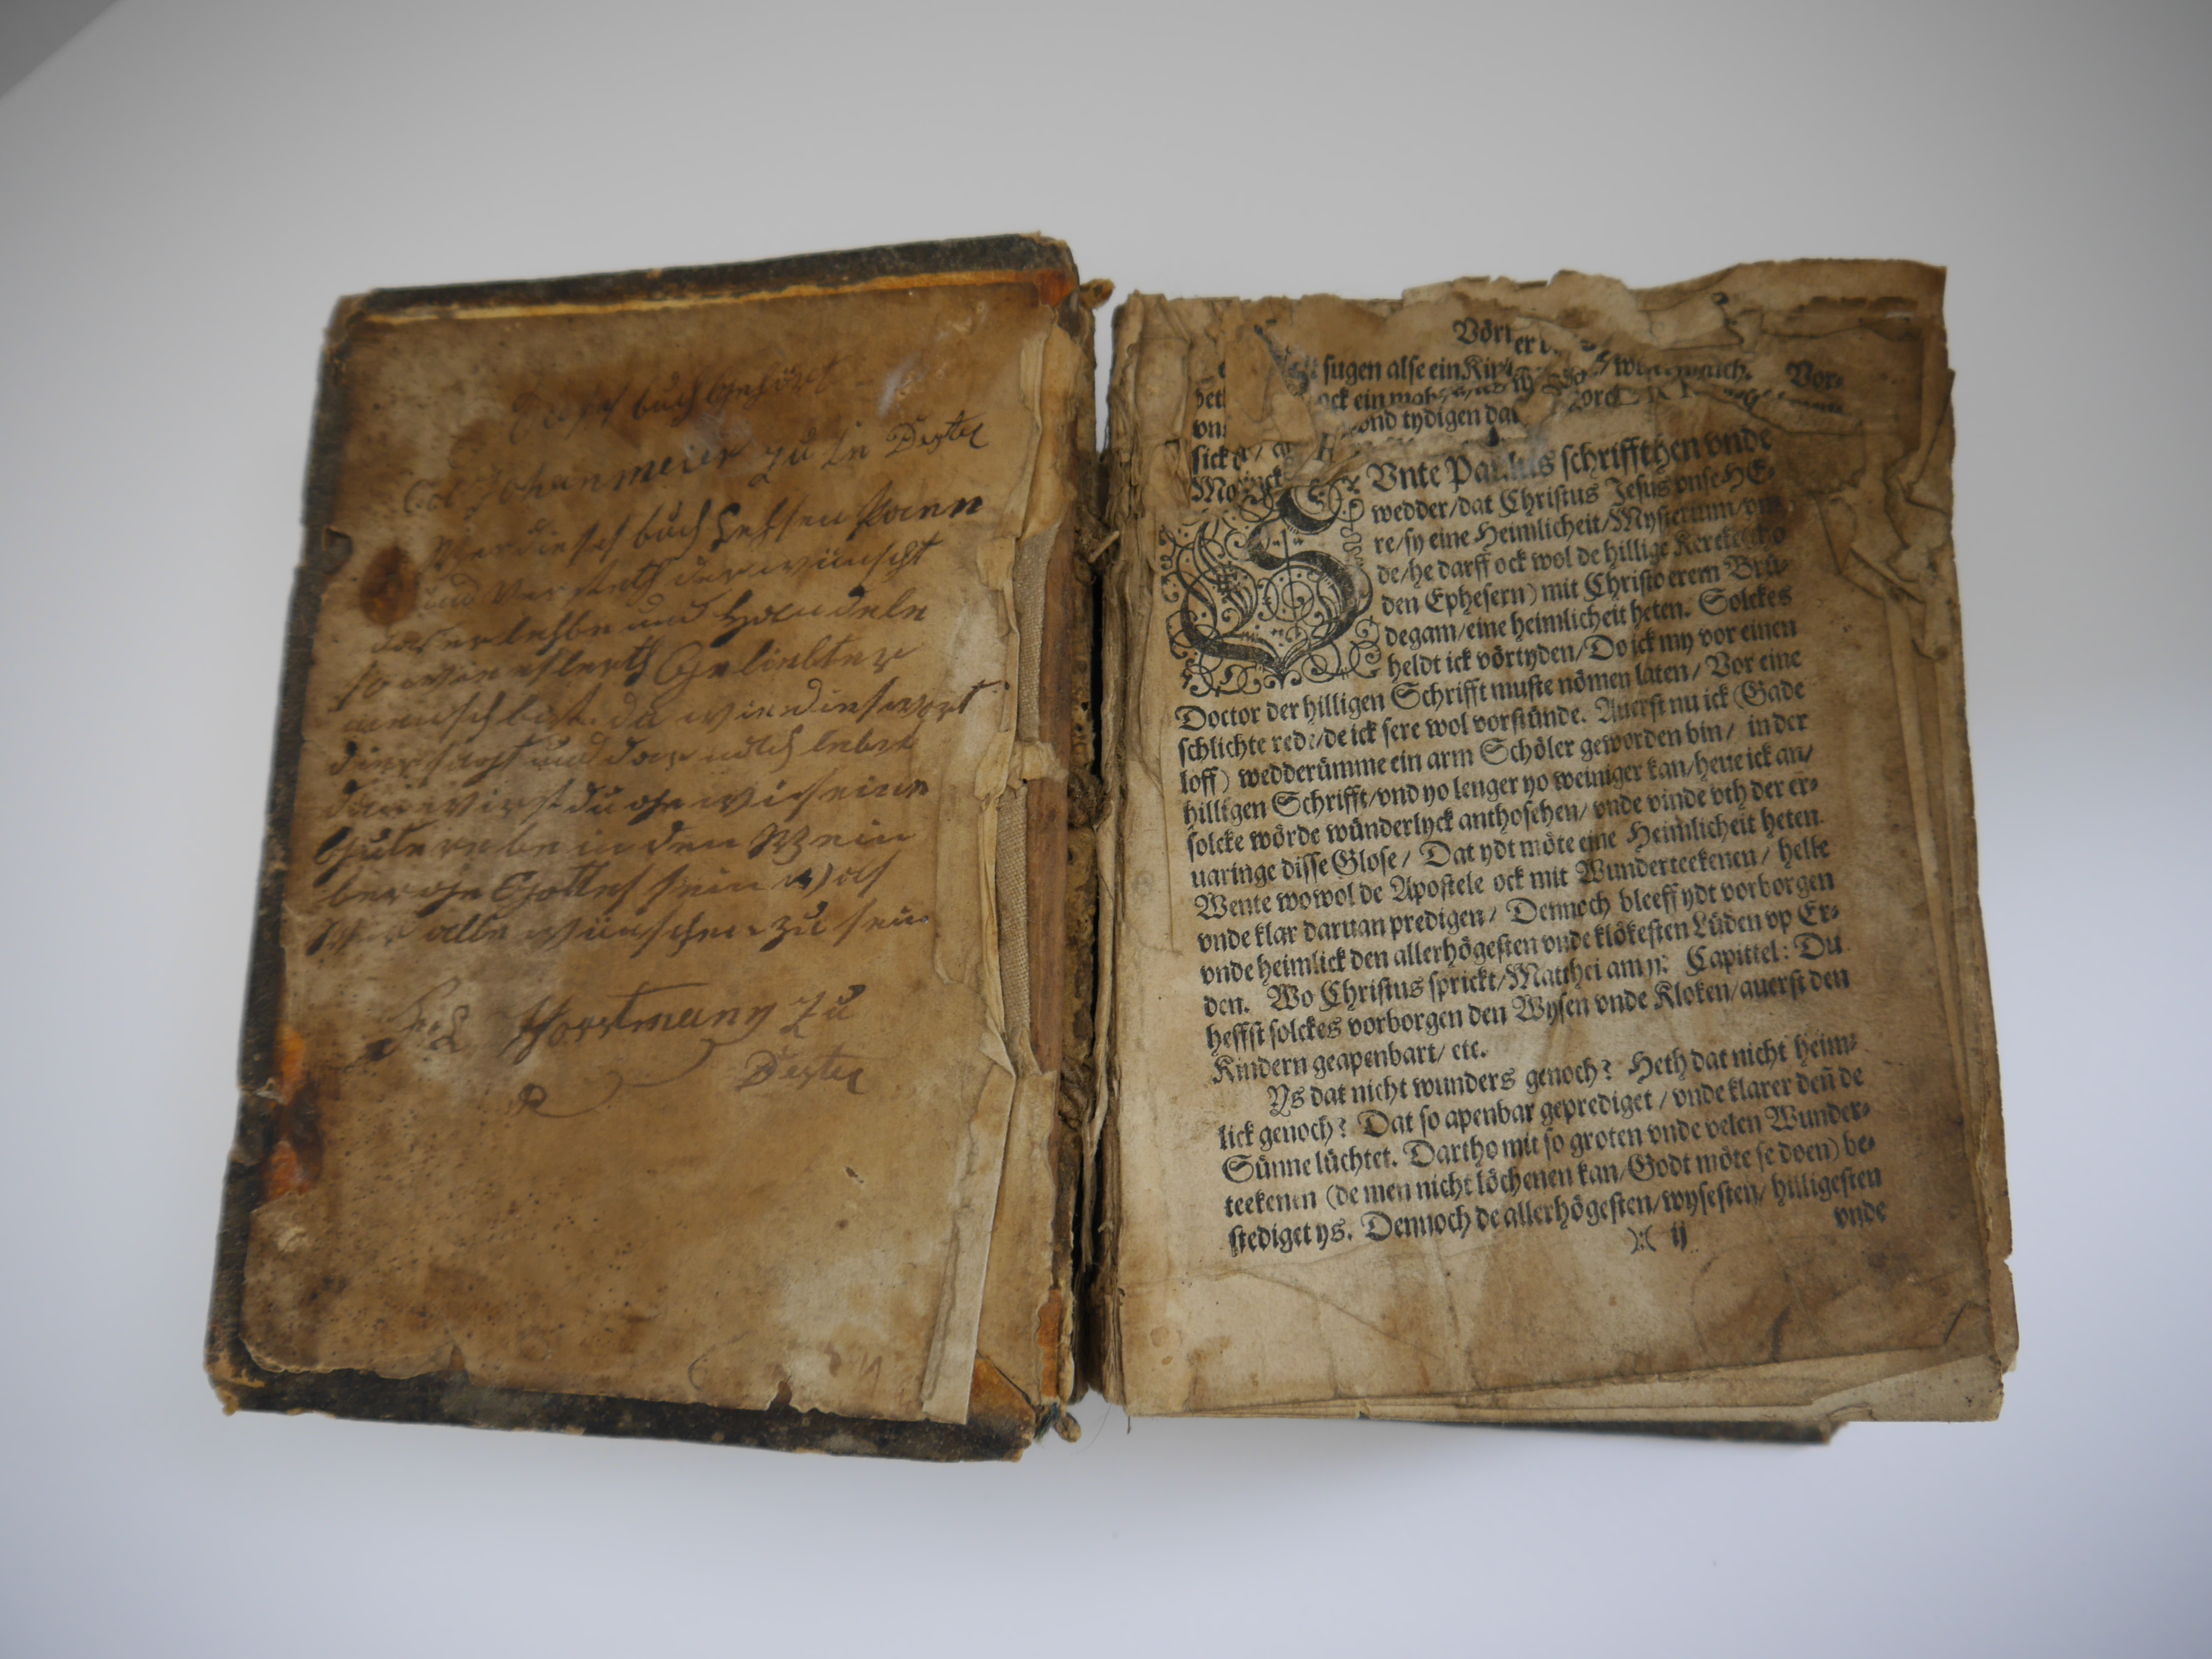 Dieses buch gehört
Col Johanmeier zu in Dexter
Wer dieses buch Lessen kann
und versteth der wünscht
das er lehbe und Handele
so wie es lerth Geliebter
mensch bist du wie dies wort
dier sagt und dar nach lebst
dan wirst du gewis eine
Gute rebe in den Wein
berge Gottes sein Was
Wir alle wünschen zu sein
Horstmann zu
Dexter
Vör
sugen alse ein
ock ein
vnd tydigen dat
Vnte Paulus schriffthen vnde
wedder/dat Christus Jesus vnse HE-
re/sy eine Heimlicheit/Mysterium/
de/he darff ock wol de hillige Kercke
den Ephesern) mit Christo erem Brü-
degam/eine heimlicheit heten. Solckes
heldt ick vörtyden/Do ick my vor einen
Doctor der hilligen Schrifft muste nömen laten/ Vor eine
schlichte rede/de ick sere wol vorstünde. Auerst nu ick (Gade
loff) wedderümme ein arm Schöler geworden bin/ in der
hilligen Schrifft/vnd yo lenger yo weiniger kan/heue ick an/
solcke wörde wünderlyck anthosehen/ vnde vinde vth der er-
uaringe disse Glose/ Dat ydt möte eine Heimlicheit heten.
Wente wowol de Apostele ock mit Wunderteekenen/ helle
vnde klar daruan predigen/ Dennoch bleeff ydt vorborgen
vnde heimlick den allerhögesten vnde klökesten Lüden vp Er-
den. Wo Christus sprickt/Matthei am 11. Capittel: Du
heffst solckes vorborgen den Wysen vnde Kloken/auerst den
Kindern geapenbart/ etc.
Ys dat nicht wunders genoch? Heth dat nicht heim-
lick genoch? Dat so apenbar geprediget / vnde klarer deñ de
Sünne lüchtet. Dartho mit so groten vnde velen Wunder-
teekenen (de men nicht löchenen kan/Godt möte se doen) be-
stediget ys. Dennoch de allerhögesten/wysesten/ hilligesten
):( ij vnde